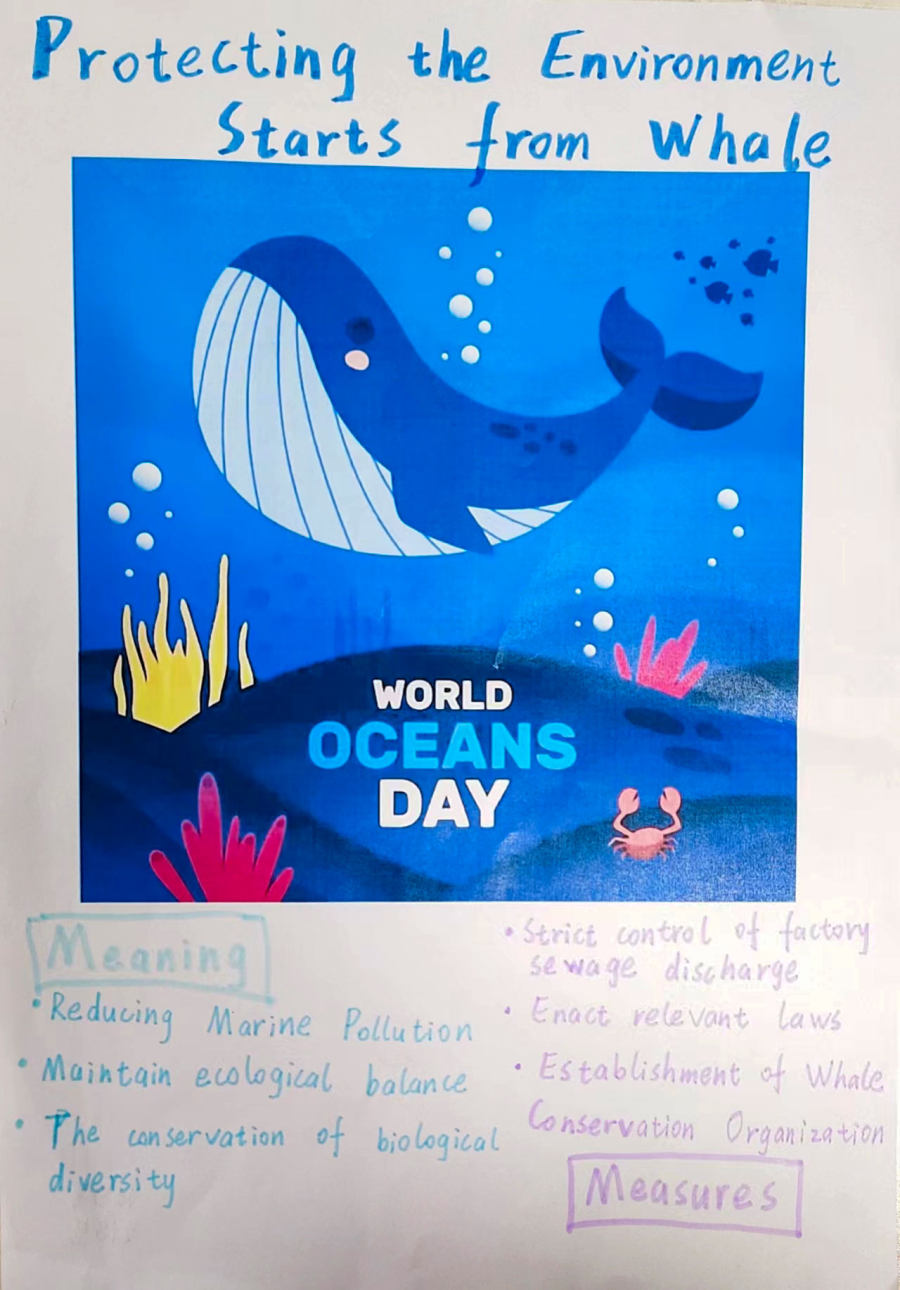 Protecting the Environment
Starts from Whale
WORLD
OCEANS
DAY
Meaning
• Reducing Marine Pollution
• Maintain ecological balance
• The conservation of biological
diversity
• Strict control of factory
sewage discharge
• Enact relevant laws
• Establishment of Whale
Conservation Organization
Measures